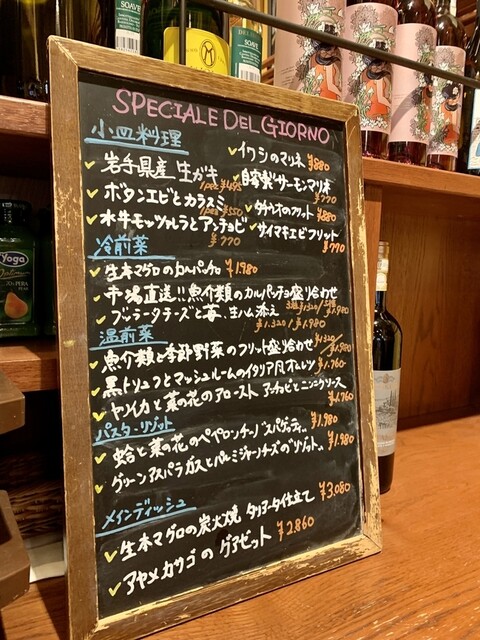 SOAVE
SOAVE
SPECIALE DEL GIORNO
小皿料理
岩手県産 生ガキ
1pez ¥495
ボタンエビとカラスミ
1pez ¥550
水牛モッツァレラとアンチョビ
¥770
イワシのマリネ ¥880
自家製サーモンマリネ
¥770
のフリット ¥880
サイマキエビフリット
¥770
冷前菜
生本マグロのカルパッチョ ¥1.980
市場直送!!魚介類のカルパッチョ盛り合わせ
¥1.320 / ¥1.980
ブッラータチーズと苺 生ハム添え
¥1.980
温前菜
魚介類と季節野菜のフリット盛り合わせ ¥1.320 / ¥1.980
黒トリュフとマッシュルームのイタリア風オムレツ ¥1.760
ヤリイカと菜の花のアロースト アンチョビとニンニクソース
¥1.760
パスタ・リゾット
蛤と菜の花のペペロンチーノ スパゲッティ.. ¥1.980
グリーンアスパラガスとパルミジャーノチーズのリゾット.. ¥1.980
メインディッシュ
生本マグロの炭火焼 タリアータ仕立て ¥3.080
アヤメカサゴのグアゼット ¥2.860
Yoga